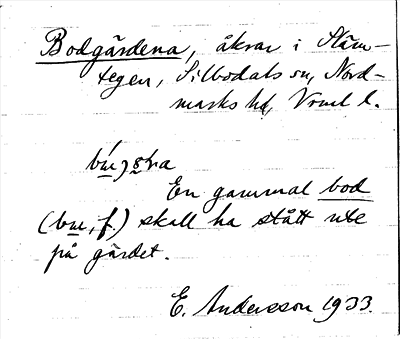 Bodgärdena, åkrar i Stäm-
tegen, Silbodals sn, Nord-
marks hd, Vrml l.
En gammal bod
(bɯ, f.) skall ha stått ute
på gärdet.
E. Andersson 1933.